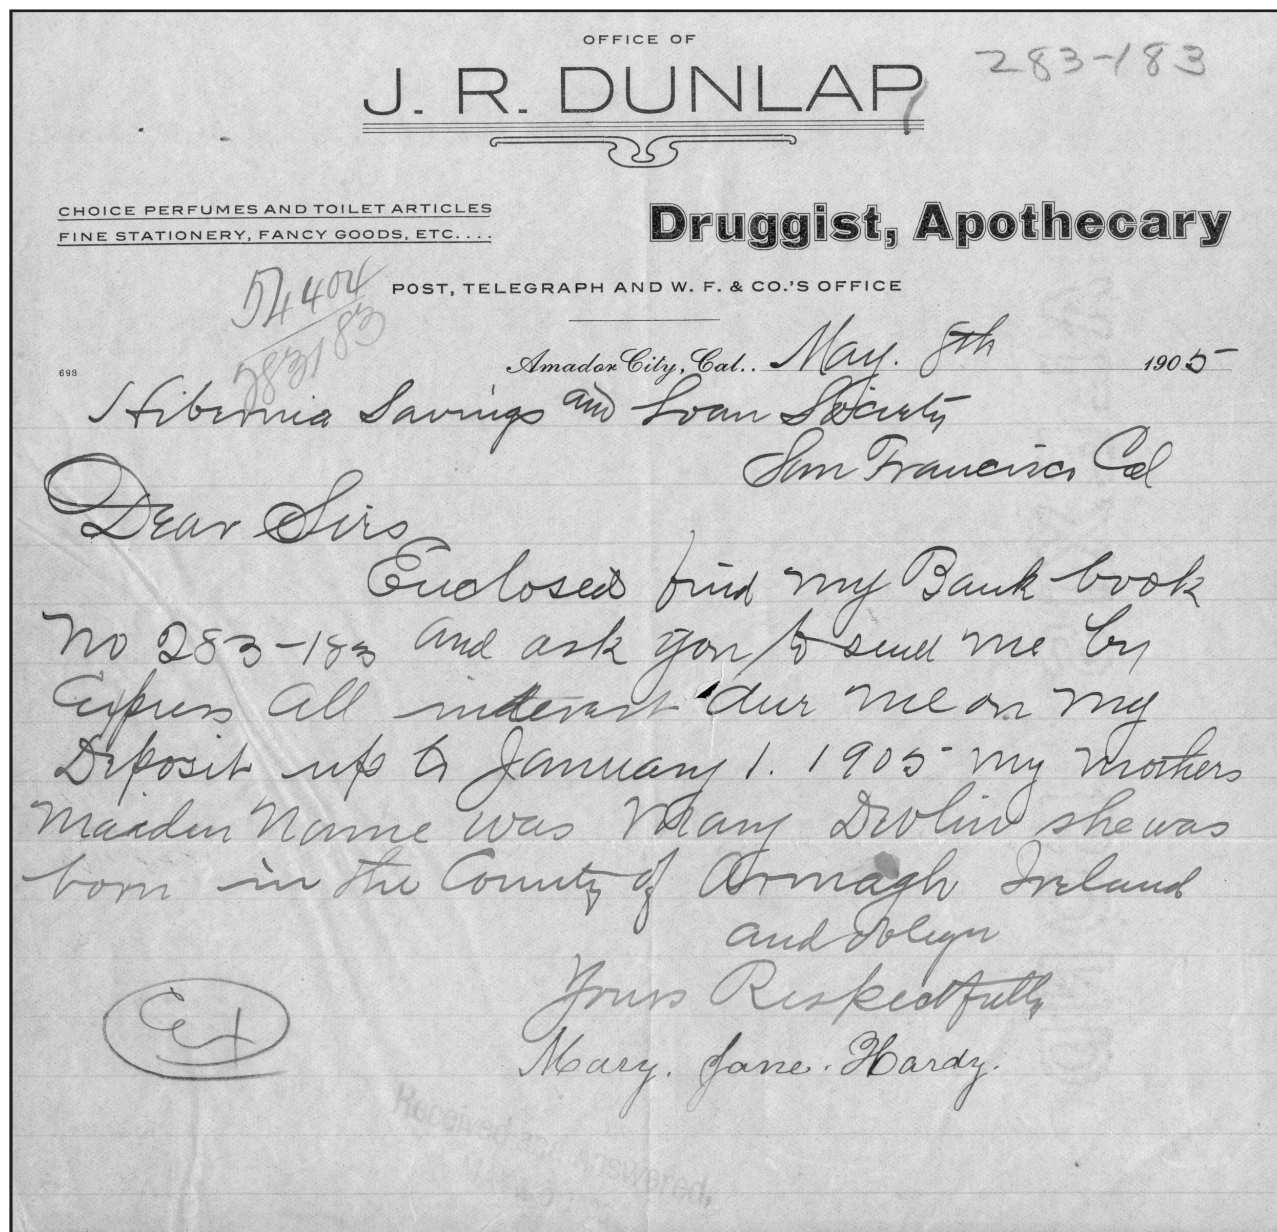 OFFICE OF
J. R. DUNLAP
283-183
CHOICE PERFUMES AND TOILET ARTICLES
FINE STATIONERY, FANCY GOODS, ETC....
Druggist, Apothecary
54404
283183
POST, TELEGRAPH AND W. F. & CO.'S OFFICE
698
Amador City, Cal.. May. 8th 1905
Hibernia Savings and Loan Society
San Francisco Cal
Dear Sirs
Enclosed find my Bank book
No 283-183 and ask you to send me by
Express all interest due me on my
Deposit up to January 1. 1905 my mothers
maiden Name was Mary Devlin she was
born in the County of Armagh Ireland
and oblige
Yours Respectfully
Mary. Jane. Hardy.
Ex
Received and Answered,
MAY